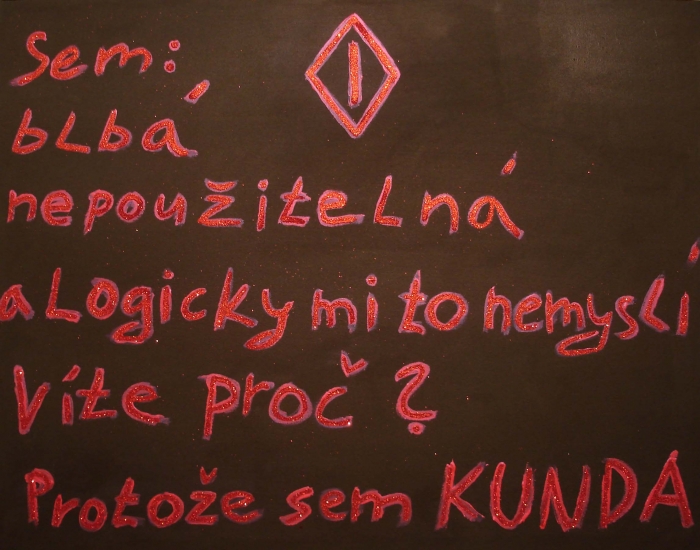 Sem:
bLbá
nepoužiteLná
a Logicky mi to nemysLí
Víte proč?
Protože sem KUNDA